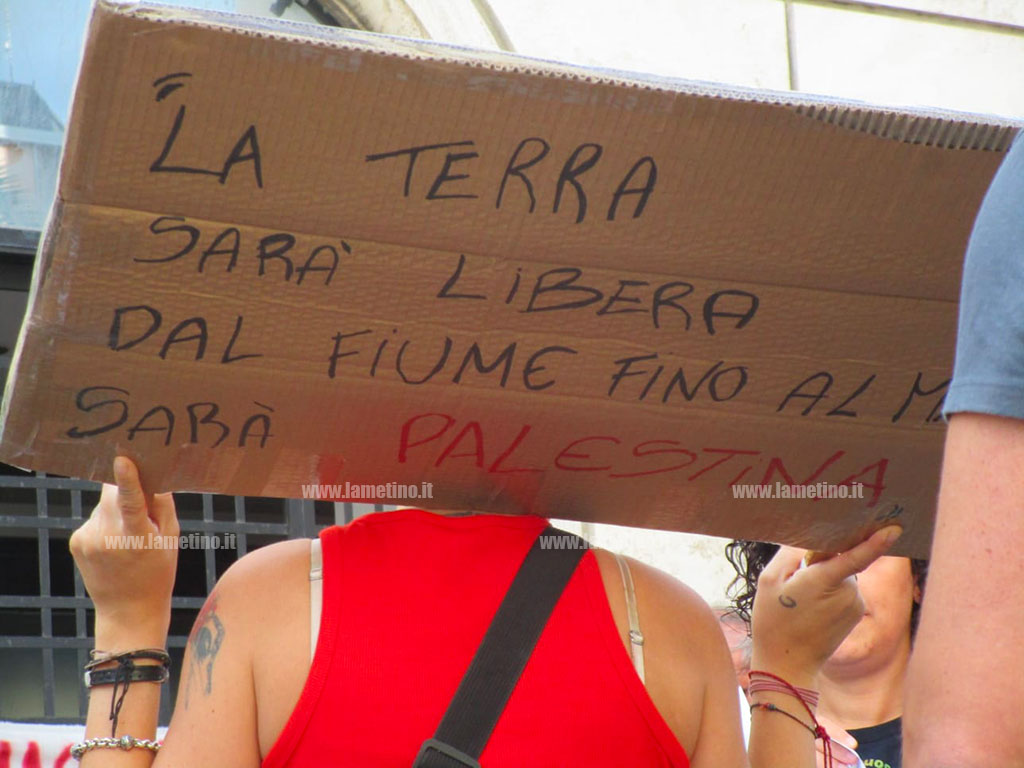 "LA TERRA
SARÀ LIBERA
DAL FIUME FINO AL MA
SARÀ PALESTINA"
www.lametino.it
www.lametino.it
www.lametino.it
www.